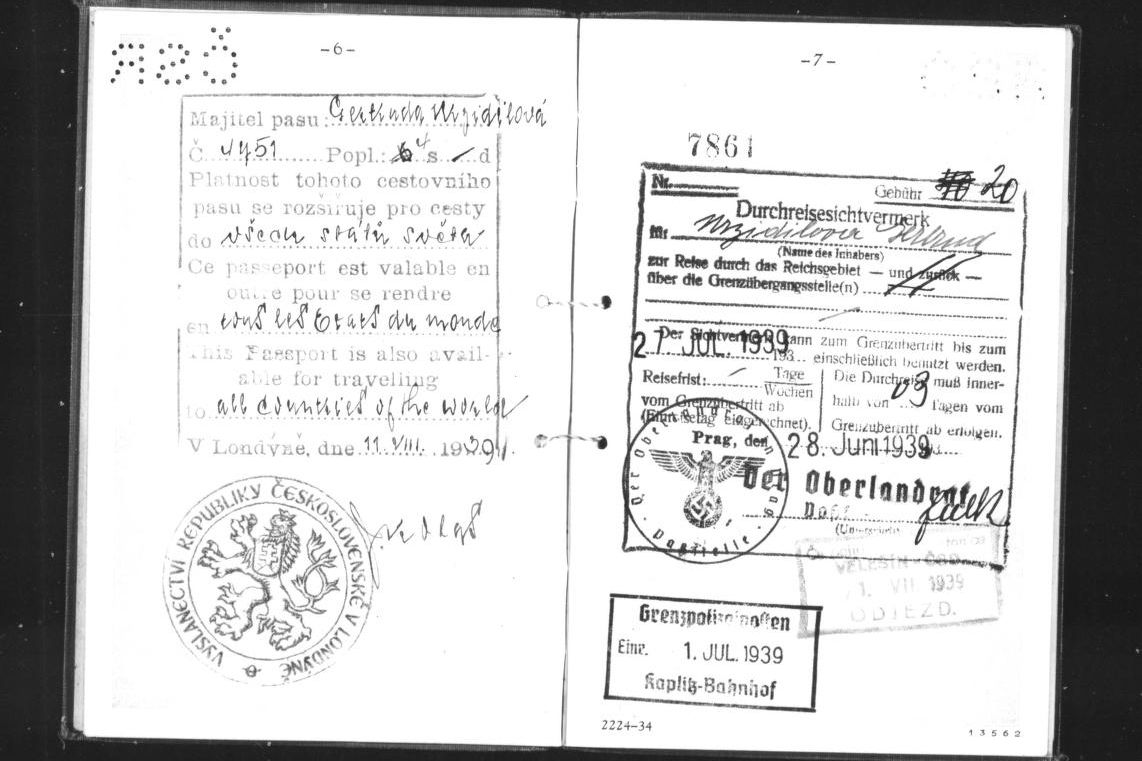 -6-
ČSR
Majitel pasu: Gertruda Urzidilová
Č. 4451 Popl.: 4 s — d
Platnost tohoto cestovního
pasu se rozšiřuje pro cesty
do všech států světa
Ce passeport est valable en
outre pour se rendre
en tous les Etats du monde
This Passport is also avail-
able for travelling
to all countries of the world
V Londýně, dne 11. VIII. 1939.
VYSLANECTVÍ REPUBLIKY ČESKOSLOVENSKÉ V LONDÝNĚ
-7-
7861
Nr.
Gebühr 20
Durchreisesichtvermerk
für Urzidilova Gertrud
(Name des Inhabers)
zur Reise durch das Reichsgebiet — und zurück —
über die Grenzübergangsstelle(n)
Der Sichtvermerk kann zum Grenzübertritt bis zum
27. JUL. 1939 193... einschließlich benutzt werden.
Reisefrist: — Tage
Wochen
vom Grenzübertritt ab
(Einreisetag eingerechnet).
Die Durchreise muß inner-
halb von 03 Tagen vom
Grenzübertritt ab erfolgen.
Prag, den 28. Juni 1939
Der Oberlandrat
Der Oberlandrat in Prag
Paßstelle
VELEŠÍN - ČSD
1. VII 1939
ODJEZD.
Grenzpolizeiposten
Einr. 1. JUL. 1939
Kaplitz-Bahnhof
2224-34
13562